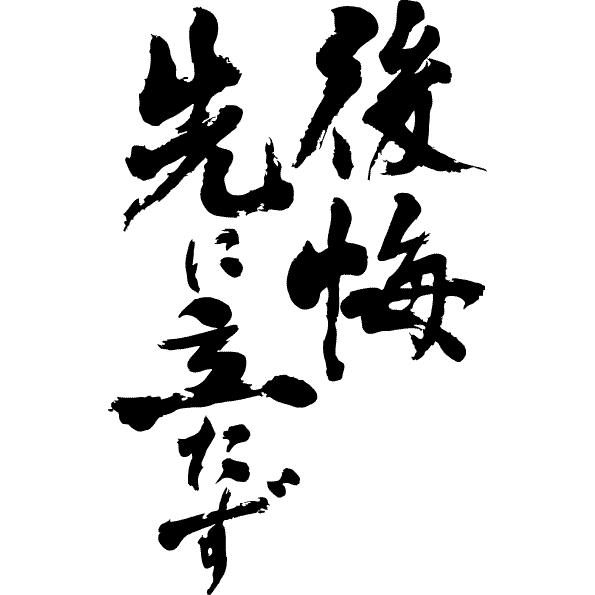 後悔
先に立たず